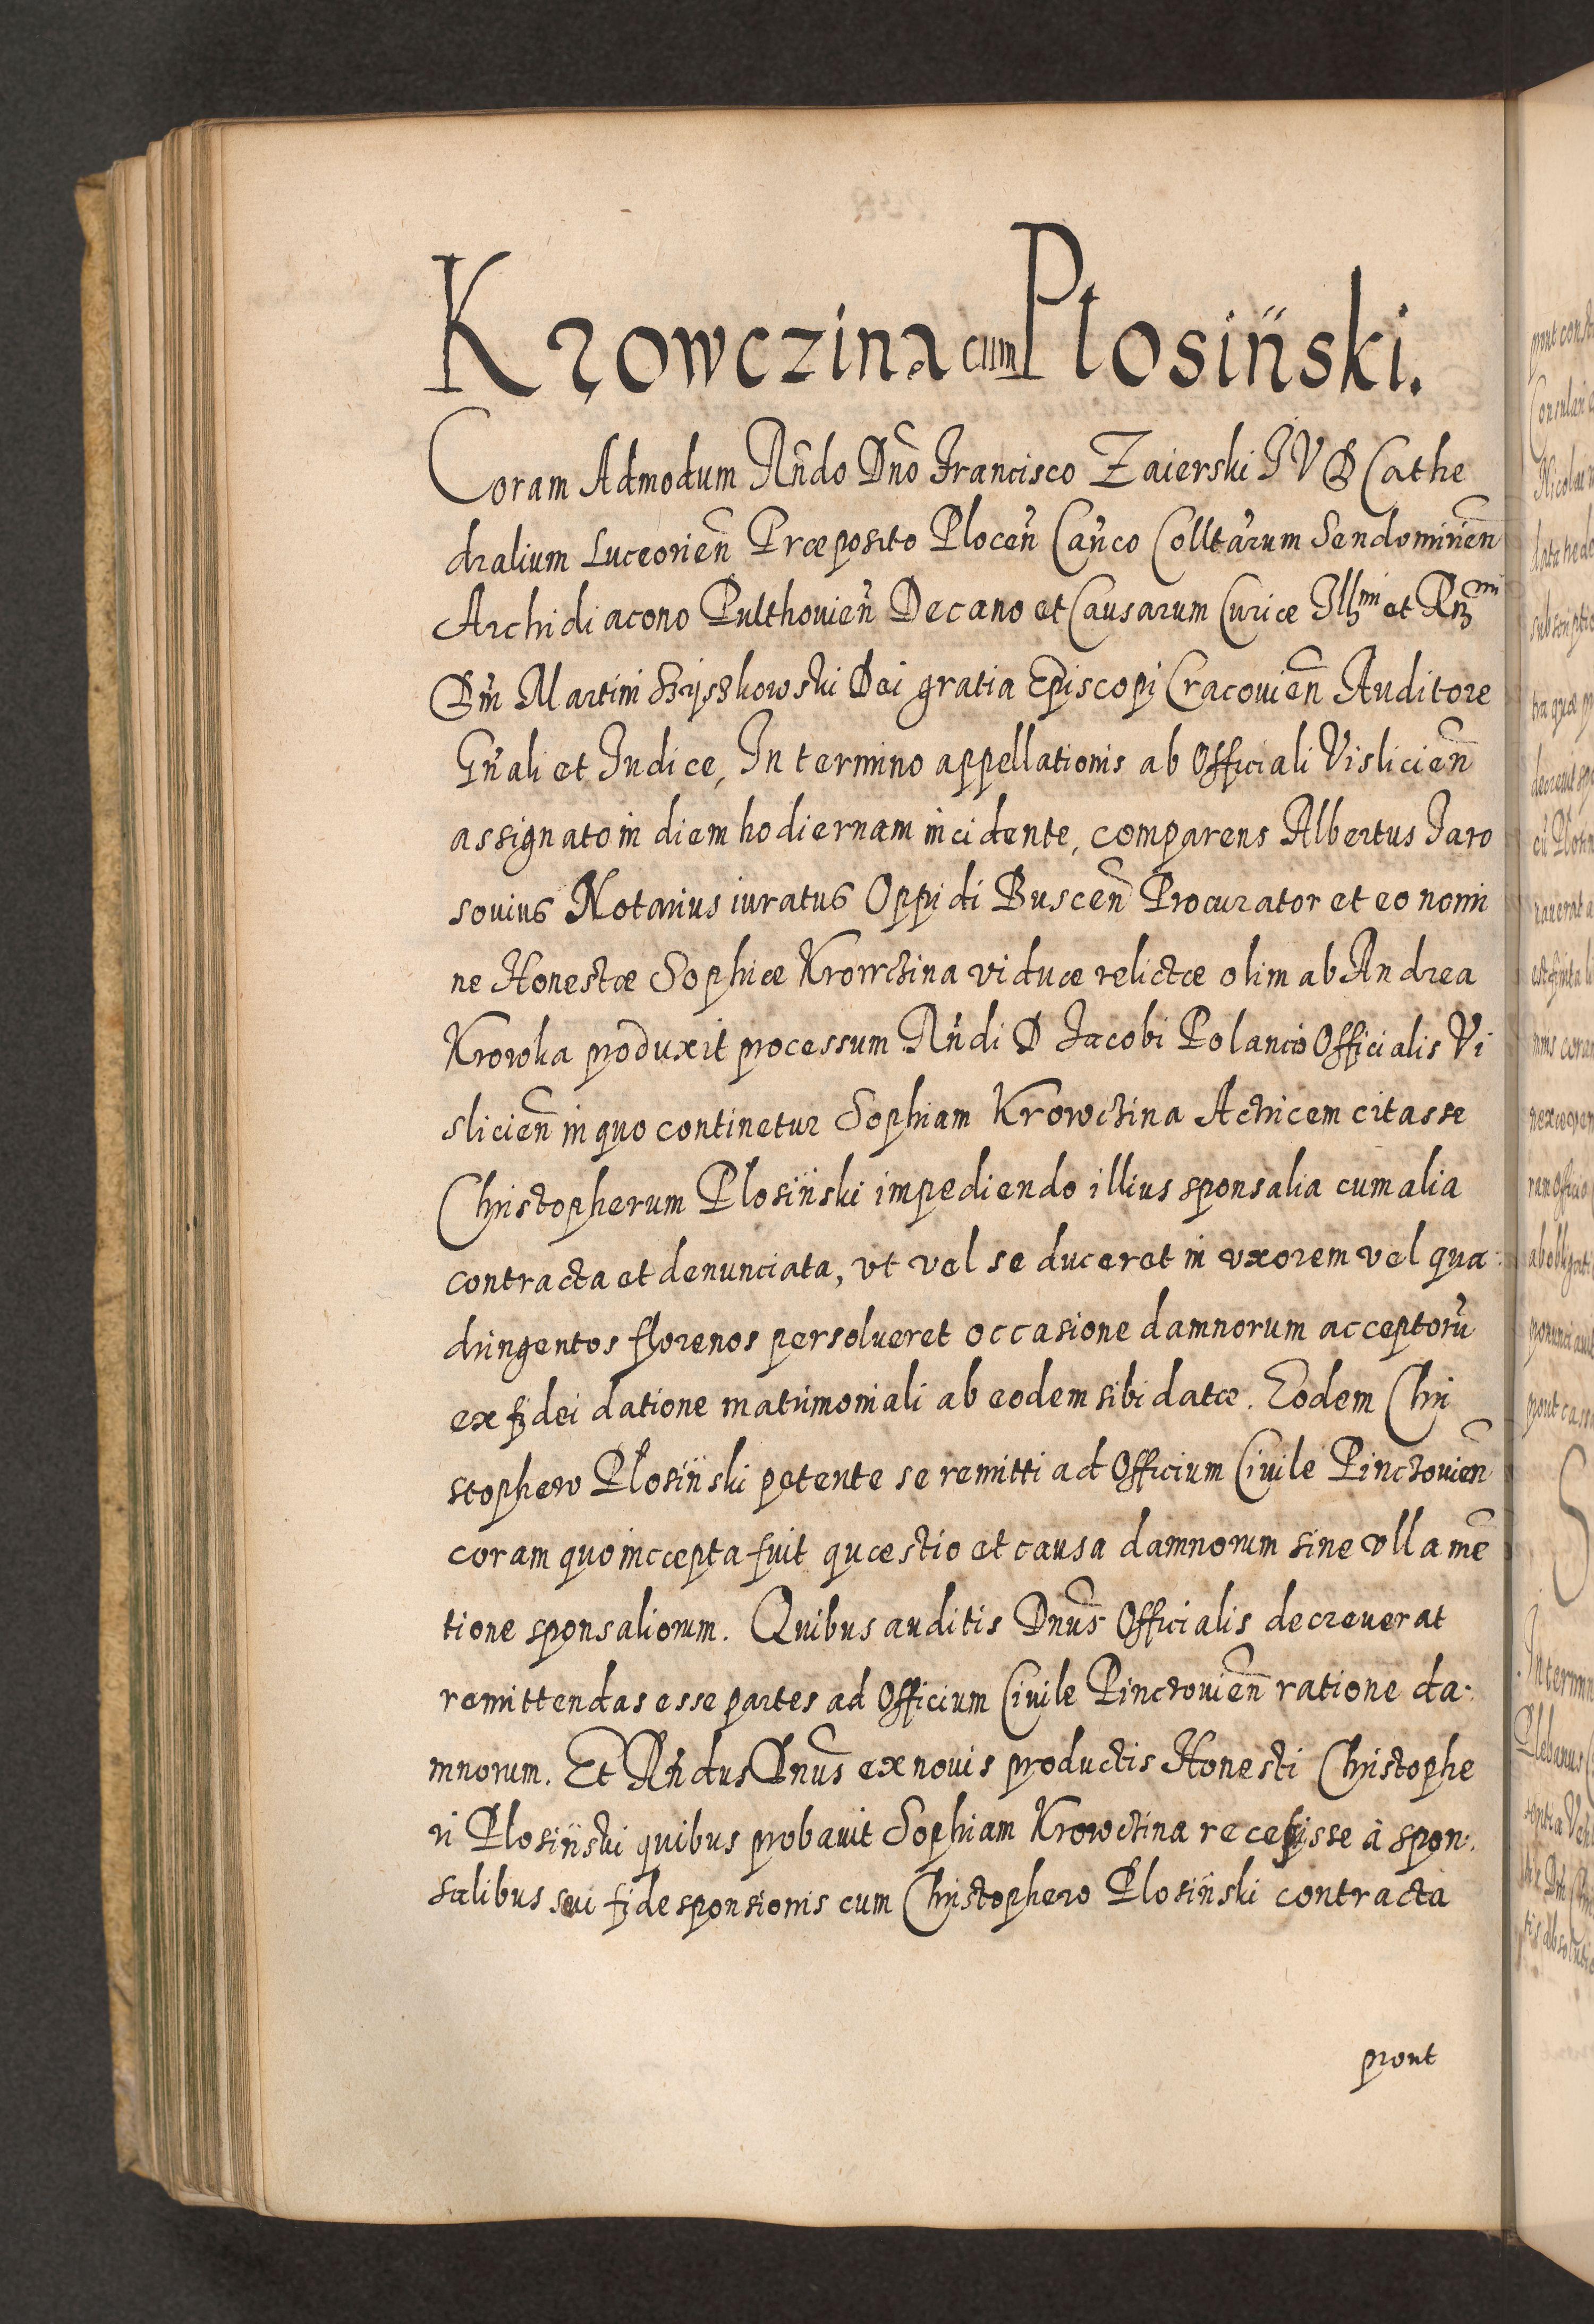 Krowczina cum Plosiński.
Coram Admodum Rñdo Dño Francisco Zaierski I V D Cathe
dralium Luceorieñ Præposito Ploceñ Cañco Colltarum Sendomirieñ
Archidiacono Pulthovieñ Decano et Causarum Curiæ Illmi et Rmi
Dñi Martini Szyszkowski Dei gratia Episcopi Cracovieñ Auditore
Gñali et Iudice, In termino appellationis ab Officiali Vislicieñ
assignato in diem hodiernam incidente, comparens Albertus Iaro
sovius Notarius iuratus Oppidi Busceñ Procurator et eo nomi
ne Honestæ Sophiæ Krowczina viduæ relictæ olim ab Andrea
Krowka produxit processum Rñdi D Iacobi Rolancio Officialis Vi
slicieñ in quo continetur Sophiam Krowczina Actricem citasse
Christopherum Plosiński impediendo illius sponsalia cum alia
contracta et denunciata, vt vel se duceret in vxorem vel qua:
dringentos florenos persolueret occasione damnorum acceptorũ
ex fidei datione matrimoniali ab eodem sibi datæ. Eodem Chri
stophero Plosiński petente se remitti ad Officium Civile Pinczovieñ
coram quo inccepta fuit quæstio et causa damnorum sine vlla mẽ
tione sponsaliorum. Quibus auditis Dnus Officialis decreverat
remittendas esse partes ad Officium Civile Pinczovieñ ratione da:
mnorum. Et Rñdus Dnus ex novis productis Honesti Christophe
ri Plosiński quibus probavit Sophiam Krowczina recessisse à spon:
salibus seu fide sponsionis cum Christophero Plosiński contracta
prout